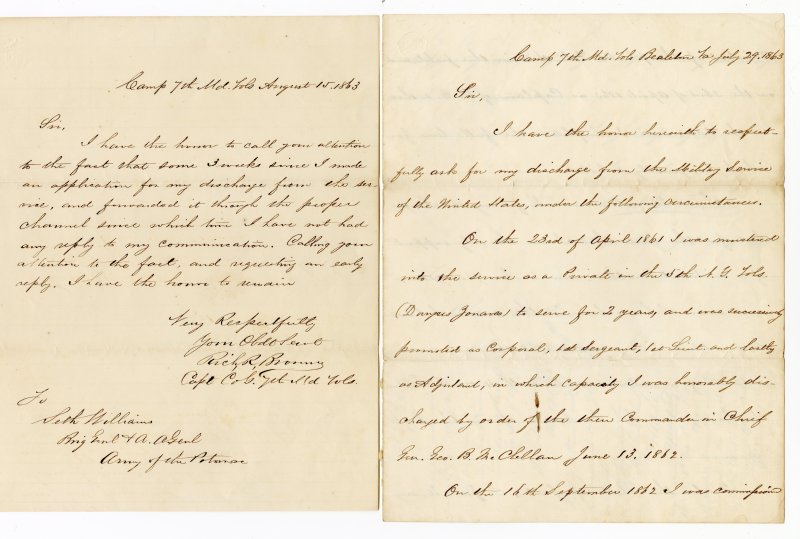 Camp 7th Md. Vols August 15. 1863
Sir,
I have the honor to call your attention
to the fact that some 3 weeks since I made
an application for my discharge from the ser-
vice, and forwarded it through the proper
channel since which time I have not had
any reply to my communication. Calling your
attention to the fact, and requesting an early
reply. I have the honor to remain
Very Respectfully
Your Obdt Servt
Rich. R. Browne
Capt Co G. 7th Md Vols.
To
Seth Williams
Brig Genl & A. A Genl
Army of the Potomac
Camp 7th Md. Vols Bealeton Va July 29. 1863
Sir,
I have the honor herewith to respect-
fully ask for my discharge from the Military Service
of the United States, under the following circumstances.
On the 23rd of April 1861 I was mustered
into the service as a Private in the 5th N. Y. Vols.
(Duryees Zouaves) to serve for 2 years, and was successively
promoted as Corporal, 1st Sergeant, 1st Lieut and lastly
as Adjutant, in which capacity I was honorably dis-
charged by order of the then Commander in Chief
Gen. Geo. B. McClellan June 13. 1862.
On the 16th September 1862 I was commission